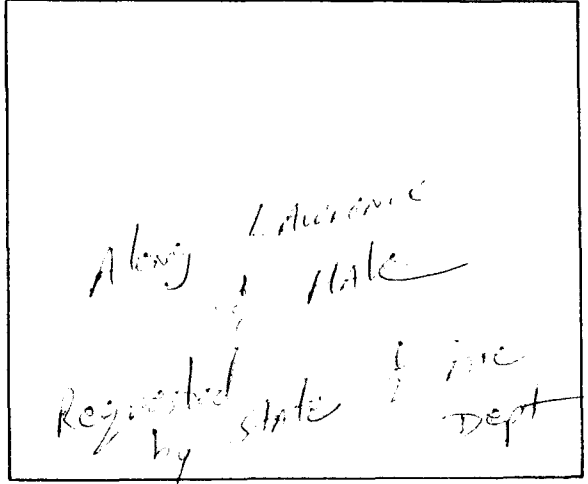 Along Lawrence
& Hale
Requested
by State & Fire
Dept